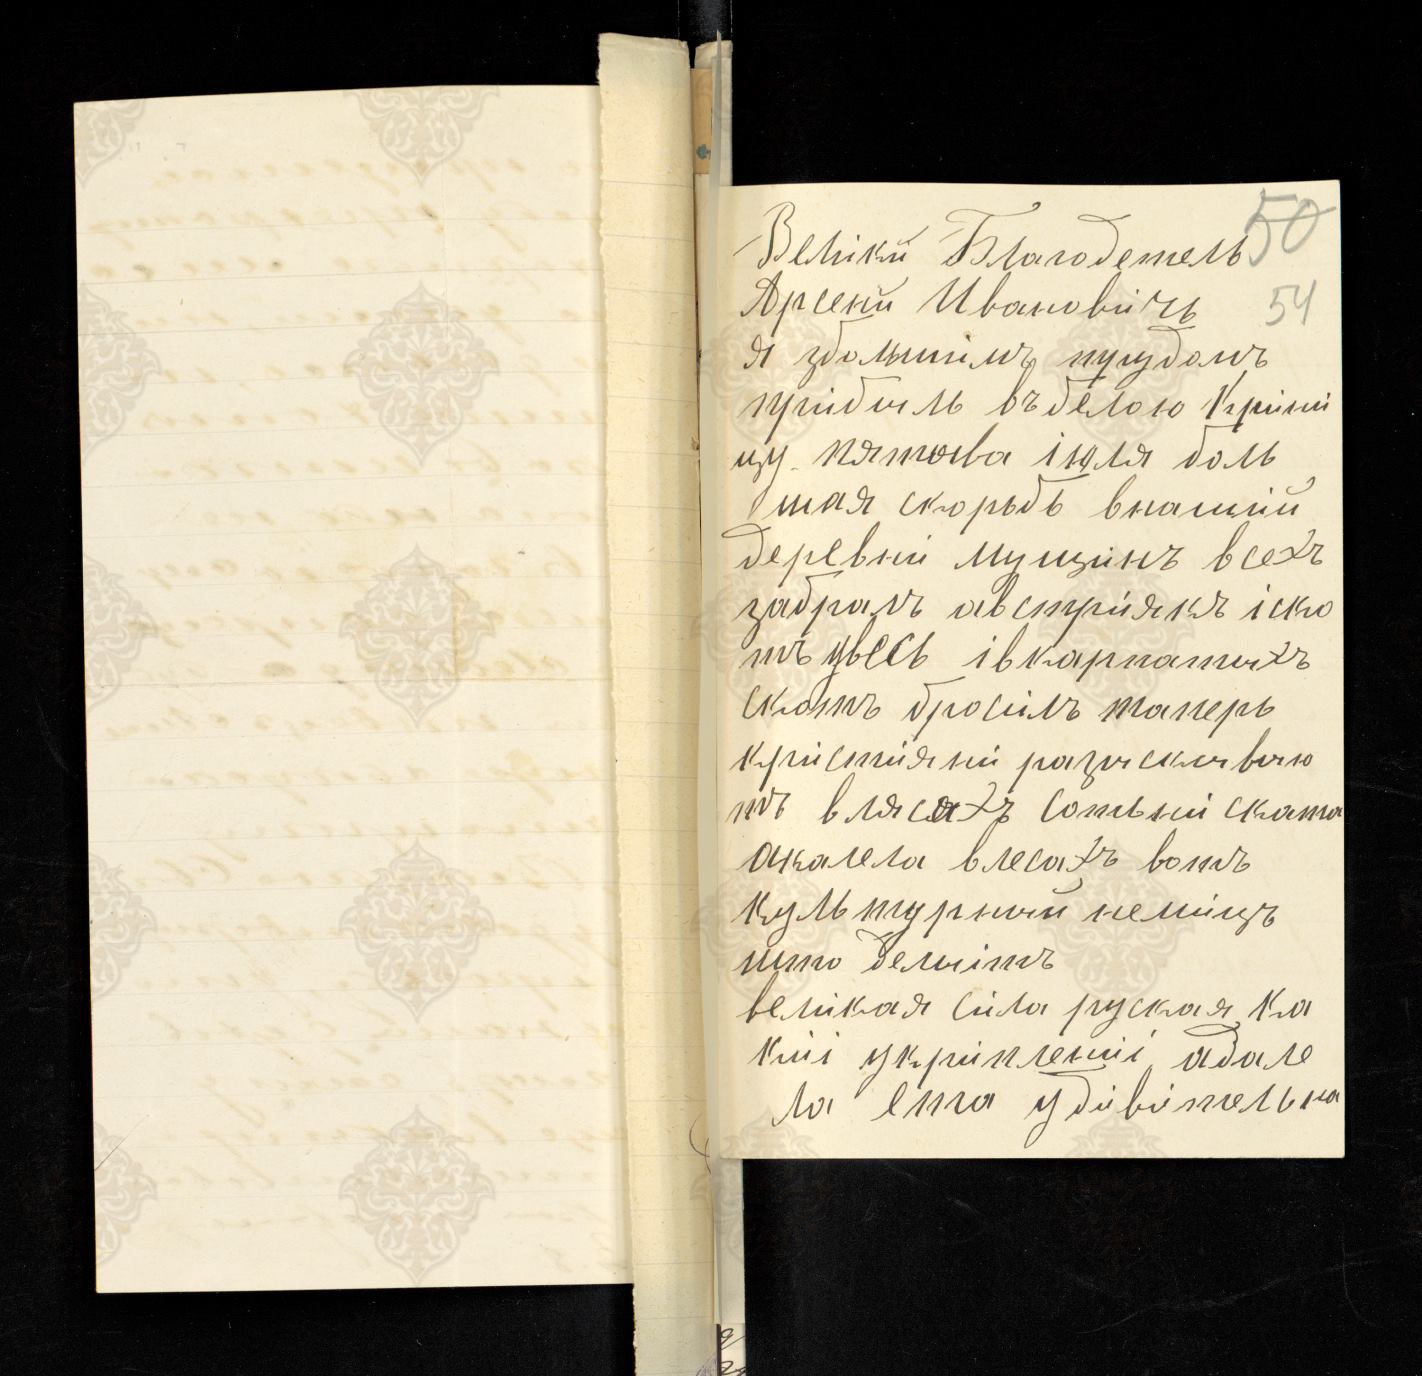 50
Велiкй Благодетель
Арсенй Ивановичь
54
я збольшiмъ трудомъ
прибилъ въ белою Крини
цу. пятова iюля боль
шая скорьбь внашiй
деревни мущинъ всехъ
забралъ австриякъ iско
тъ увесь iвкарпатыхъ
скотъ бросилъ таперь
кристияни разыскываю
тъ влясахъ сотьни ската
акалела влесахъ вотъ
культурный немицъ
што делаiтъ
великая сила руская ка
киi укриплениi адале
ла ета удивительна